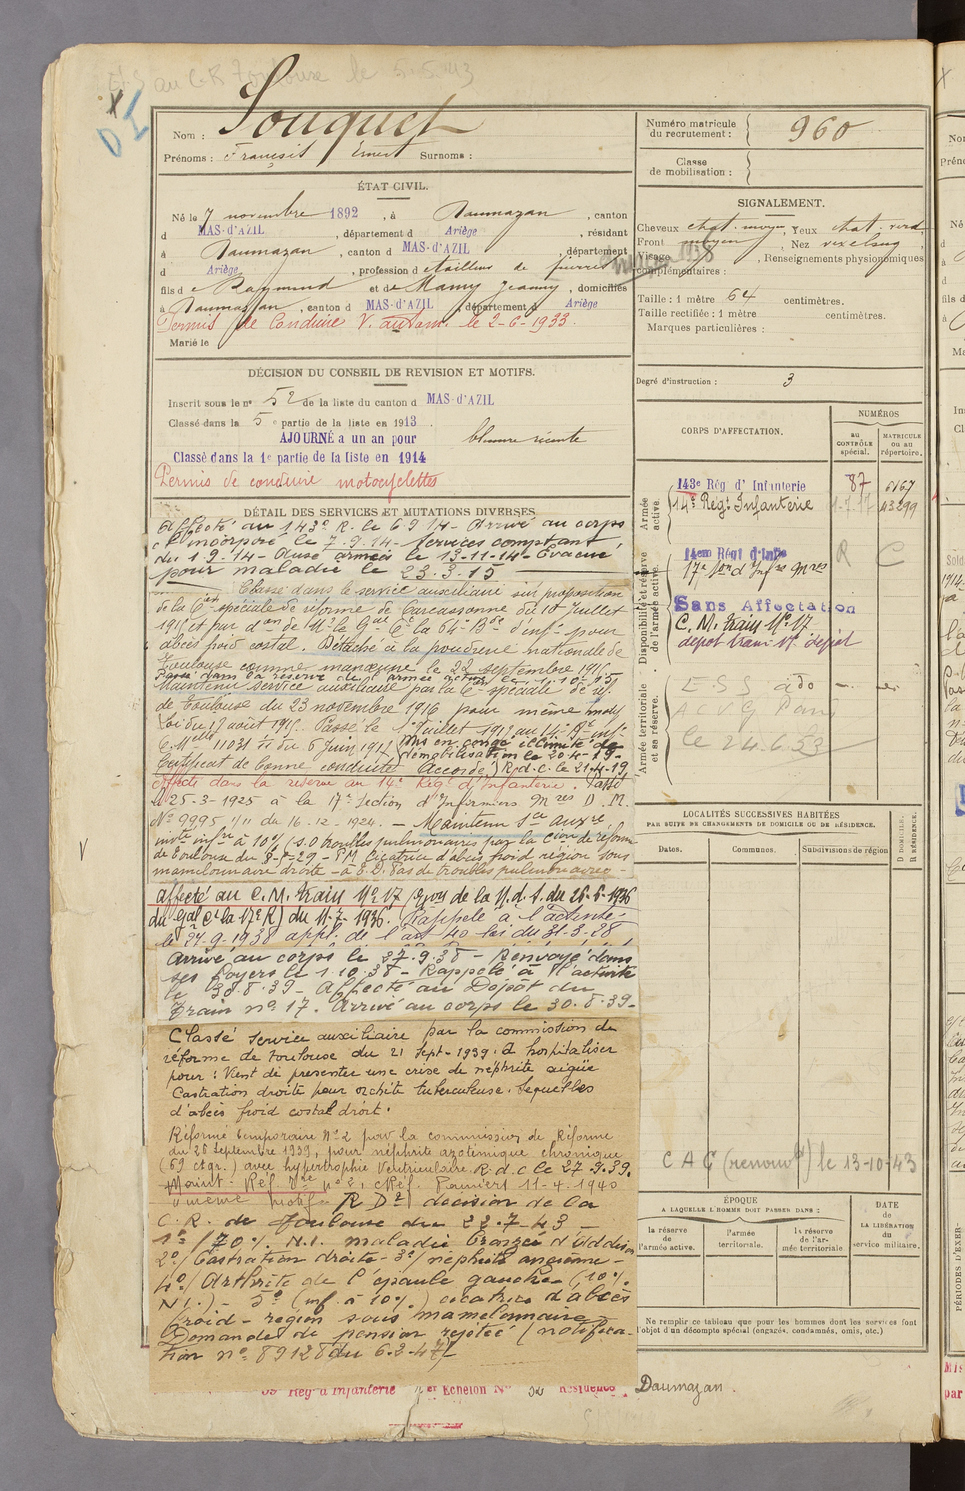 au C.R Toulouse le 5.5.43
X
D I
Nom : Souquet
Prénoms : François Ernest Surnoms :
ÉTAT CIVIL.
Né le 7 novembre 1892 , à Daumazan , canton
d MAS-d'AZIL , département d Ariège , résidant
à Daumazan , canton d MAS-d'AZIL , département
d Ariège , profession d tailleur de pierres
fils de Raymond et de Mamy Jeanny , domiciliés
à Daumazan , canton d MAS-d'AZIL , département d Ariège
Permis de Conduire V. autom. le 2-6-1933.
Marié le
DÉCISION DU CONSEIL DE REVISION ET MOTIFS.
Inscrit sous le n° 52 de la liste du canton d MAS-d'AZIL
Classé dans la 5 e partie de la liste en 1913
AJOURNÉ a un an pour blessure récente
Classé dans la 1e partie de la liste en 1914
Permis de conduire motocyclettes
DÉTAIL DES SERVICES ET MUTATIONS DIVERSES
Affecté au 143e R. le 6 9 14 - Arrivé au corps
et incorporé le 7.9.14 - Services comptant
du 1-9-14 - Aux armées le 13-11-14 - Evacué
pour maladie le 23-3-15
Classé dans le service auxiliaire sur proposition
de la Con spéciale de réforme de Carcassonne du 10 Juillet
1915 et par don de Mr le Gal Ct la 64e Bde d'infie pour
abcès froid costal. Détaché à la poudrerie nationale de
Toulouse comme manœuvre le 22 septembre 1915
Passé dans la réserve de l'armée active le 1.10.15
Maintenu service auxiliaire par la Con spéciale de réf.
de Toulouse du 23 novembre 1916 pour même motif
Loi du 17 août 1915. Passé le 1er Juillet 1917 au 14e Rt inf.
C. Mlle 11031 du 6 juin 1917 Mis en congé illimité de
démobilisation le 20-4-19-
Certificat de bonne conduite Accordé. R.d.c. le 21-4-19
Affecté dans la réserve au 14e Rég. d'Infanterie. Passé
le 25-3-1925 à la 17e Section d'Infirmiers Mres D.M.
No 9995 1/11 du 16-12-1924. — Maintenu Sce auxre
invté infre à 10% (s.o troubles pulmonaires par la Cion de réforme
de Toulouse du 8-7-29 - P.M. Cicatrice d'abcès froid région sous
mamelonnaire droite - à E.D. Pas de troubles pulmonaires -
Affecté au C.M. train No 17 (Gon de la N.d.S. du 26-6-1936
du Gal Ct la 17e R) du 11-7-1936. Rappelé à l'activité
le 24-9-1938 appl. de l'art 40 loi du 31-3-28
Arrivé au corps le 27.9.38 - Renvoyé dans
ses foyers le 1.10.38 - Rappelé à l'activité
le 30.8.39 - Affecté au Dépôt du
Train no 17. Arrivé au corps le 30.8.39-
Classé service auxiliaire par la commission de
réforme de Toulouse du 21 Sept-1939. à hospitaliser
pour : Vient de présenter une crise de néphrite aigüe
Castration droite pour orchite tuberculeuse. Sequelles
d'abcès froid costal droit.
Réformé temporaire No 2 par la commission de Réforme
du 26 septembre 1939, pour néphrite azotémique chronique
(69 ctgr.) avec hypertrophie Ventriculaire. R.d.c le 27.9.39.
Maint. Réf. Tre no 2, cRéf. Pamiers 11-4-1940
même motif R D2 décision de la
C.R. de Toulouse du 22-7-43 —
1o/ 70% N.I. maladie bronzée d'Addison
2o/ Castration droite - 3o/ néphrite ancienne -
4o/ Arthrite de l'épaule gauche (10%
N.I.) - 5o (inf. à 10%) cicatrice d'abcès
froid - région sous mamelonnaire
Demande de pension rejetée (notifica-
tion no 89128 du 6-2-47)
59 Rég d'Infanterie 1er Echelon No 52 Résidence Daumazan
V
Numéro matricule
du recrutement : 960
Classe
de mobilisation :
SIGNALEMENT.
Cheveux chat. moyen , Yeux chat. verd
Front moyen , Nez rexelsug
Visage , Renseignements physionomiques
complémentaires :
Taille : 1 mètre 64 centimètres.
Taille rectifiée : 1 mètre centimètres.
Marques particulières :
Degré d'instruction : 3
CORPS D'AFFECTATION.
NUMÉROS
AU CONTRÔLE spécial.
MATRICULE ou au répertoire.
Armée active.
143e Rég d'Infanterie 87 6167
14e Régt Infanterie 1-7-17 43299
Disponibilité et réserve de l'armée active.
14em Régt d'Infie R C
17e Son d'Infres Mres
Sans Affectation
C. M. train No 17
depot train 17 depot
Armée territoriale et sa réserve.
A C V G Paris
le 24.6.53
LOCALITÉS SUCCESSIVES HABITÉES
PAR SUITE DE CHANGEMENTS DE DOMICILE OU DE RÉSIDENCE.
Dates.
Communes.
Subdivisions de région
D DOMICILE.
R RÉSIDENCE.
C A C (renouvlt) le 13-10-43
ÉPOQUE
A LAQUELLE L'HOMME DOIT PASSER DANS :
la réserve de l'armée active.
l'armée territoriale.
la réserve de l'armée territoriale
DATE de LA LIBÉRATION du service militaire.
Ne remplir ce tableau que pour les hommes dont les services font
l'objet d'un décompte spécial (engagés, condamnés, omis, etc.)
PÉRIODES D'EXER-